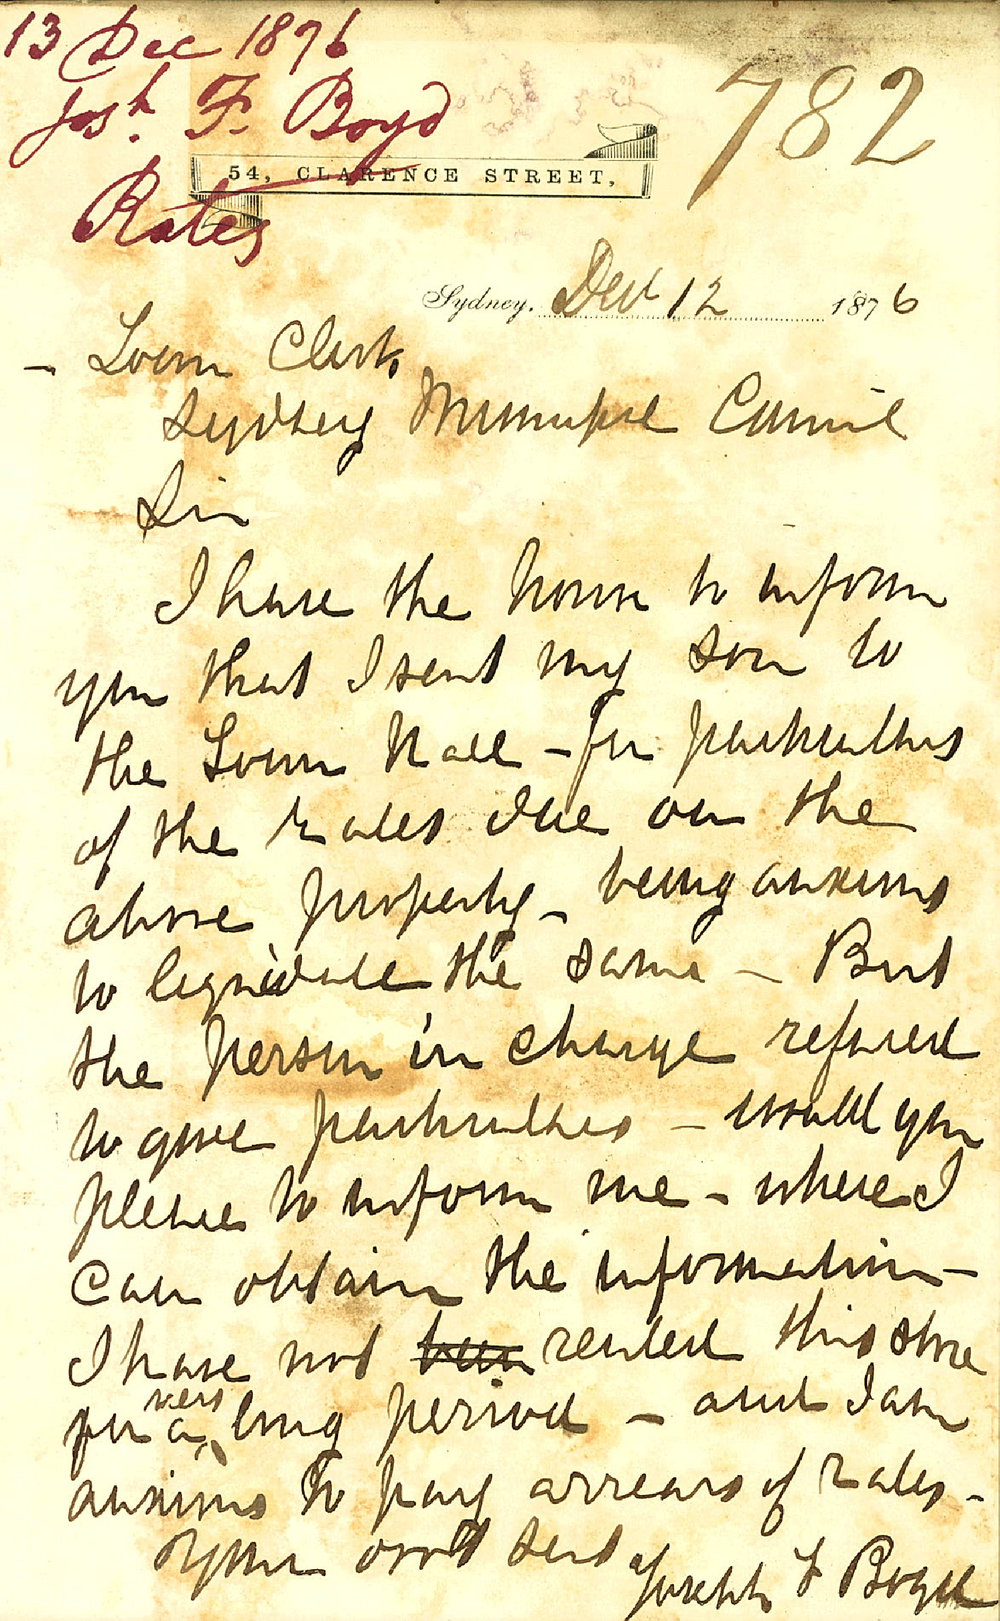 13 Dec 1876
Josh. F. Boyd
Rates
782
54, CLARENCE STREET,
Sydney, Decr 12 1876
- Town Clerk
Sydney Municipal Council
Sir
I have the honor to inform
you that I sent my son to
the Town Hall - for particulars
of the rates due on the
above property - being anxious
to liquidate the same - But
the person in charge refused
to give particulars - would you
please to inform me - where I
can obtain the information -
I have not been rented this store
for a very long period - and I am
anxious to pay arrears of rates -
Your obdt servt Joseph F Boyd